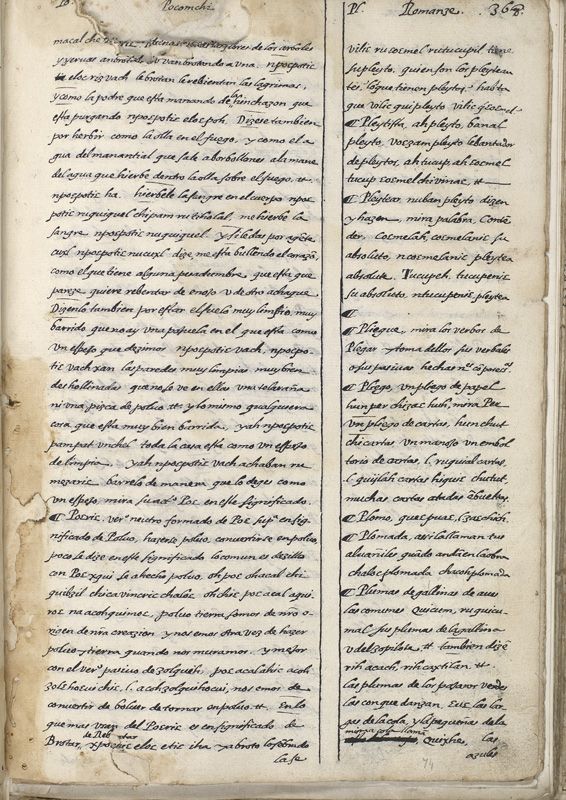 Po Pocomchi
macal che
y yervas an brotal Vuvan brotando a Una. npocpotic
eloc riz vach le brotan le rebientan las lagrimas,
y como la podre que esta manando de la hinchazon que
esta purgando npospotic eloc poh. Dizese tambien
por hervir como la olla en el fuego, y como el a
gua del manantial que sale a borbollones a la mane
del agua que hierbe dentro la olla sobre el fuego, tt
npocpotic ha. hierbele la sangre en el cuerpo npoc
potic nuquiquel chipam nu tibolal, me hierbe la
sangre npospotic nuquiquel.
cuxl npocpotic nucuxl dize, me esta bullendo el coraçõ,
como el que tiene alguna pesadumbre, que esta que
pareze quiere rebentar de enojo V de otro achaque.
Dizenlo tambien por estar el suelo muy limpio, muy
barrido que no ay Vna pajuela en el que esta como
Vn espejo que dezimos npocpotic vach, npocpo
tic vach xan las paredes muy limpias muy bien
deshollinadas que no se ve en ellas Vna telaraña
ni Vna pizca de polvo tt y lo mismo qualquiera
cosa que esta muy bien barrida, yah npocpotic
pam pat Vnchel toda la casa esta como Vn espejo
de limpia. yah npocpotic vach achaban ru
mezaric barrelo de manera que lo dejes como
Vn espejo, mira su adº Poc en este significado.
¶ Pocric, verº neutro formado de Poc supª en sig-
nificado de Polvo, hazerse polvo, convertirse en polvo,
poco se dize en este significado lo comun es dezillo
con Poc xqui se a hecho polvo, oh poc ohacal chi
quibzil chica vincric chaloc ohchic poc acal aqui
roc na acohquimoc, polvo tierra somos de nro o-
rigen de nra creazion y nos emos otra vez de hazer
polvo y tierra quando nos muramos. y mejor
con el verº pasivo de zolqueh, poc acal ahic acoh
zolchocui chic. l. acoh zolquihocui, nos emos de
convertir de bolver de tornar en polvo tt. En lo
que mas Vsan del Pocric es en significado de
de Reb tar
Brotar, xpocric eloc etic iha ya broto
la se
Pl Romanze. 368
vilic ru cosmel rectucupil tiene
su pleyto, quien son los pleytean
tes, los que tienen pleytos, hasta
que vilic qui pleyto vilic
¶ Pleytista, ah pleyto, banal
pleyto, voczam pleyto lebantador
de pleytos, ah tucup ah cosmel
tucup cosmel chi vinac, tt
¶ Pleytear nuban pleyto dizen
y hazen, mira palabra Conte
der, Cosmelah, cosmelanic su
absoluto, ncosmelanic pleytea
absolute. Tucupeh, tucupenic
su absoluto, ntucupenic pleytea
¶
¶ Pliegue, mira los verbos de
Plegar y toma dellos sus verbales
o sus pasivas hechas
¶ Pliego, vn pliego de papel
hun per chi zac huh, mira Per
Vn pliego de cartas, hun chut
chi cartas Vn manojo Vn embol
torio de cartas, l. ruquial cartas,
l. quizlah cartas hiquic chutut
muchas cartas atadas ebueltas.
¶ Plomo,
¶ Plomada, asi la llaman tus
alvaniles quãdo andã en la obra
chaloc plomada chacoh plomada
¶ Plumas de gallinas de aves
las comunes Quicum, ru quicu-
mal sus plumas de la gallina
V del zopilote, tt tambien dizē
rih acach, rih caxtilan tt.
las plumas de los pajaros verdes
las con que danzan. Euc las lar-
gas de la cola, y las pequeñas de la
misma cola llamã
Quixhe, las
azules
74